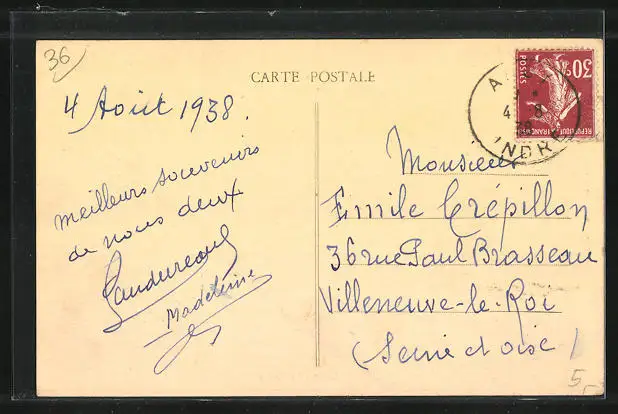 36
CARTE POSTALE
4 Août 1938.
meilleurs souvenirs
de nous deux
Madeleine
POSTES
30
REPUBLIQUE FRANÇAISE
4 8
38
INDRE
Monsieur
Emile Crépillon
36 rue Paul Brasseau
Villeneuve-le-Roi
(Seine et oise)
5